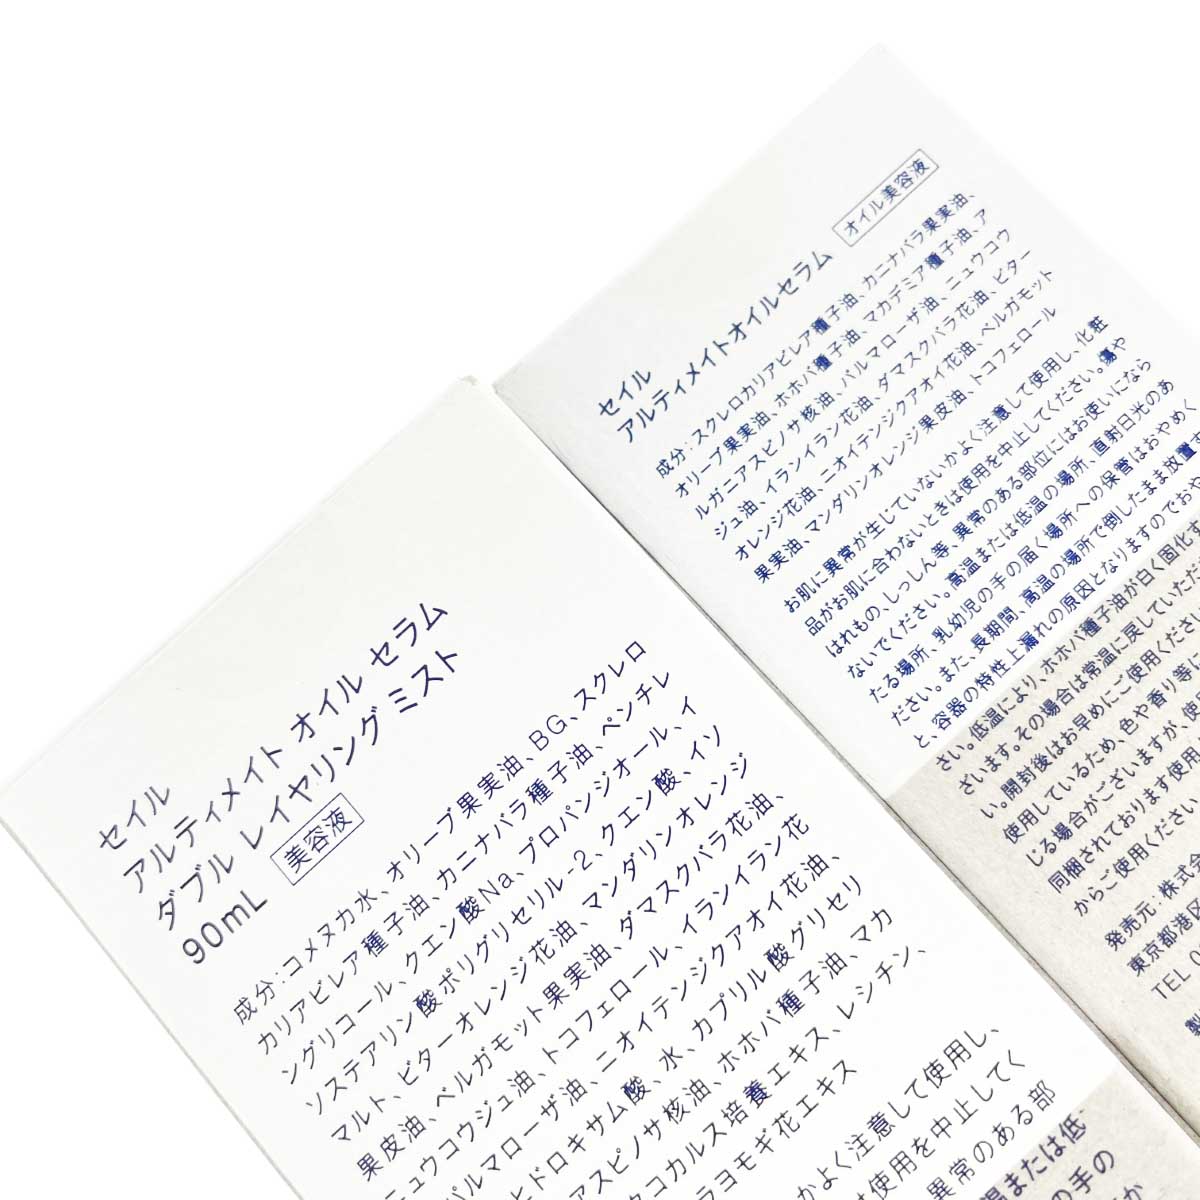 セイル
アルティメイト オイル セラム
ダブル レイヤリング ミスト
90mL
美容液
成分:コメヌカ水、オリーブ果実油、BG、スクレロ
カリアビレア種子油、カニナバラ種子油、ペンチレ
ングリコール、クエン酸Na、プロパンジオール、イ
ソステアリン酸ポリグリセリル-2、クエン酸、イソ
マルト、ビターオレンジ花油、マンダリンオレンジ
果皮油、ベルガモット果実油、ダマスクバラ花油、
ニュウコウジュ油、トコフェロール、イランイラン花
パルマローザ油、ニオイテンジクアオイ花油、
ヒドロキサム酸、水、カプリル酸グリセリ
アスピノサ核油、ホホバ種子油、マカ
コカルス培養エキス、レシチン、
ラヨモギ花エキス
かよく注意して使用し、
使用を中止してく
異常のある部
または低
の手の
か
セイル
アルティメイトオイルセラム
オイル美容液
成分:スクレロカリアビレア種子油、カニナバラ果実油、
オリーブ果実油、ホホバ種子油、マカデミア種子油、ア
ルガニアスピノサ核油、パルマローザ油、ニュウコウ
ジュ油、イランイラン花油、ダマスクバラ花油、ビター
オレンジ花油、ニオイテンジクアオイ花油、ベルガモット
果実油、マンダリンオレンジ果皮油、トコフェロール
お肌に異常が生じていないかよく注意して使用し、化粧
品がお肌に合わないときは使用を中止してください。傷や
はれもの、しっしん等、異常のある部位にはお使いになら
ないでください。高温または低温の場所、直射日光のあ
たる場所、乳幼児の手の届く場所への保管はおやめく
ださい。また、長期間、高温の場所で倒したまま放置す
と、容器の特性上漏れの原因となりますのでおや
さい。低温により、ホホバ種子油が白く固化す
ざいます。その場合は常温に戻していただ
い。開封後はお早めにご使用ください
使用しているため、色や香り等に
じる場合がございますが、使
同梱されております使用
からご使用ください
発売元:株式会
東京都港区
TEL 0
製